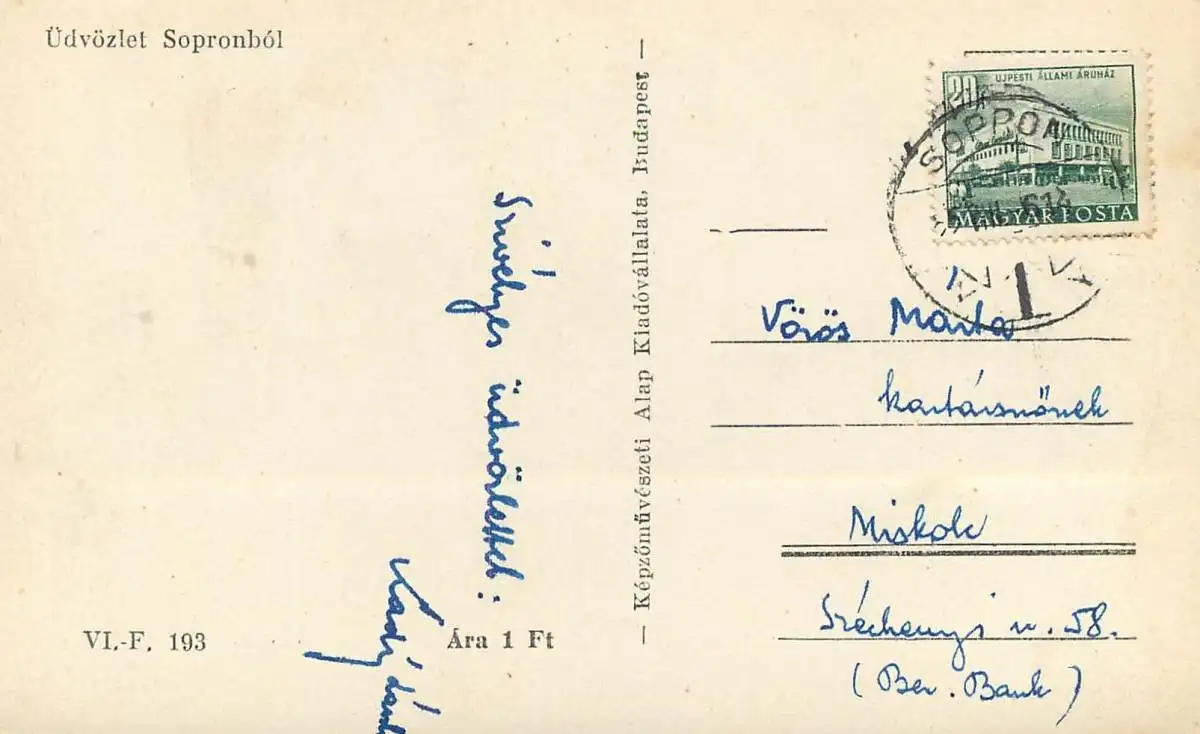 Üdvözlet Sopronból
Szívélyes üdvözlettel:
VI.-F. 193
Ára 1 Ft
— Képzőművészeti Alap Kiadóvállalata, Budapest —
20
UJPESTI ÁLLAMI ÁRUHÁZ
MAGYAR POSTA
SOPRON
1
Vörös Márta
kartársnőnek
Miskolc
Széchenyi u. 58.
(Ber. Bank)